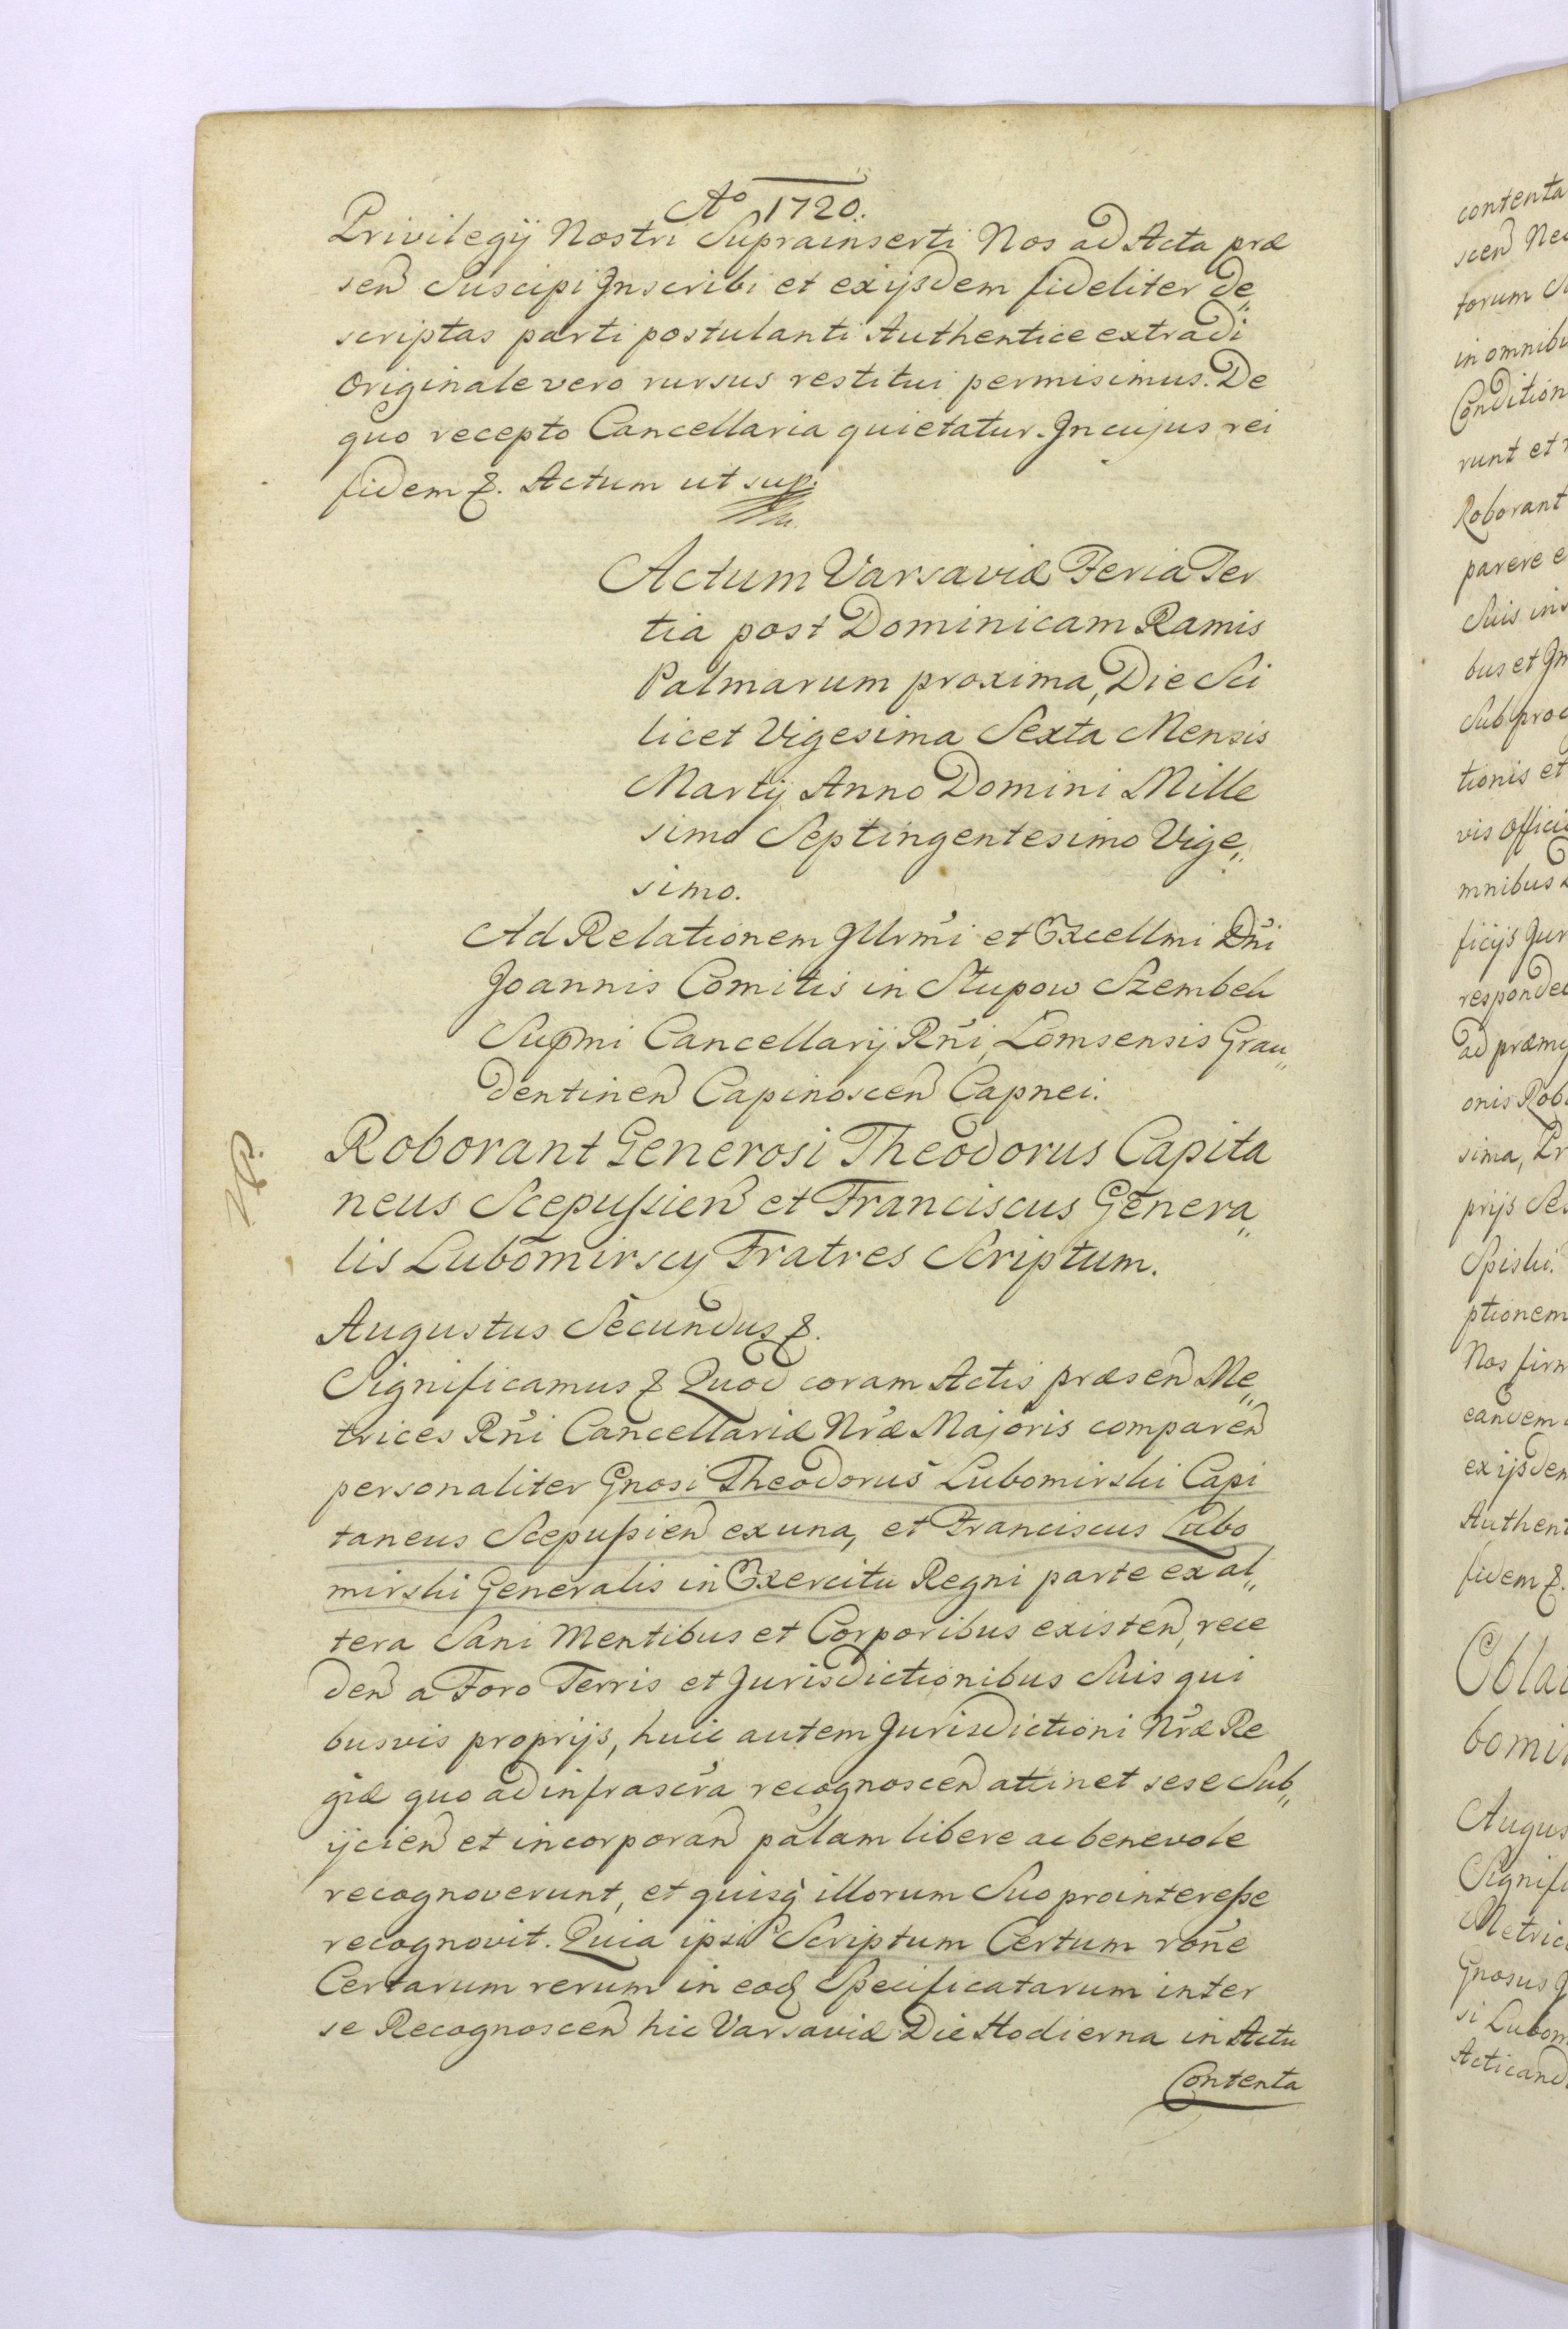 Aº 1720.
Privilegij Nostri Suprainserti Nos ad Acta præ
sen Suscipi Inscribi et ex ijsdem fideliter de„
scriptas parti postulanti Authentice extradi
Originale vero rursus restitui permisimus. De
quo recepto Cancellaria quietatur. In cujus rei
fidem &. Actum ut sup.
Actum Varsaviæ Feria Ter
tia post Dominicam Ramis
Palmarum proxima, Die Sci
licet Vigesima Sexta Mensis
Martij Anno Domini Mille
simo Septingentesimo Vige„
simo.
Ad Relationem Illrmi et Excellmi Dñi
Joannis Comitis in Słupow Szembek
Supmi Cancellarij Rñi, Lomsensis Grau„
dentinen Capinoscen Capnei.
Roborant Generosi Theodorus Capita
neus Scepussien et Franciscus Genera„
lis Lubomirscy Fratres Scriptum.
NB.
Augustus Secundus &.
Significamus & Quod coram Actis præsen Me„
trices Rñi Cancellariæ Nræ Majoris comparen
personaliter Gnosi Theodorus Lubomirski Capi
taneus Scepussien ex una, et Franciscus Lubo
mirski Generalis in Exercitu Regni parte ex al„
tera Sani Mentibus et Corporibus existen, rece
den a Foro Terris et Jurisdictionibus Suis qui
busvis proprijs, huic autem Jurisdictioni Nræ Re
giæ quo ad infrascra recognoscen attinet sese Sub„
ijcien et incorporan palam libere ac benevole
recognoverunt, et quisq illorum Suo pro interesse
recognovit. Quia ipsi Scriptum Certum rone
Certarum rerum in eod Specificatarum inter
se Recognoscen hic Varsaviæ Die Hodierna in Actu
Contenta
contenta
scen
torum
in omnibu
Condition
runt et
Roborant
parere e
Suis in
bus et
Sub proc
tionis et
vis Offici
mnibus
ficijs Jur
ad præmi
onis Rob
sima, Pr
prijs
Spiski.
ptionem
Nos firm
eandem
ex ijsdem
Authent
fidem &.
Obla
bomir
Augus
Signifi
Metric
Gnosus
si Lubom
Acticand